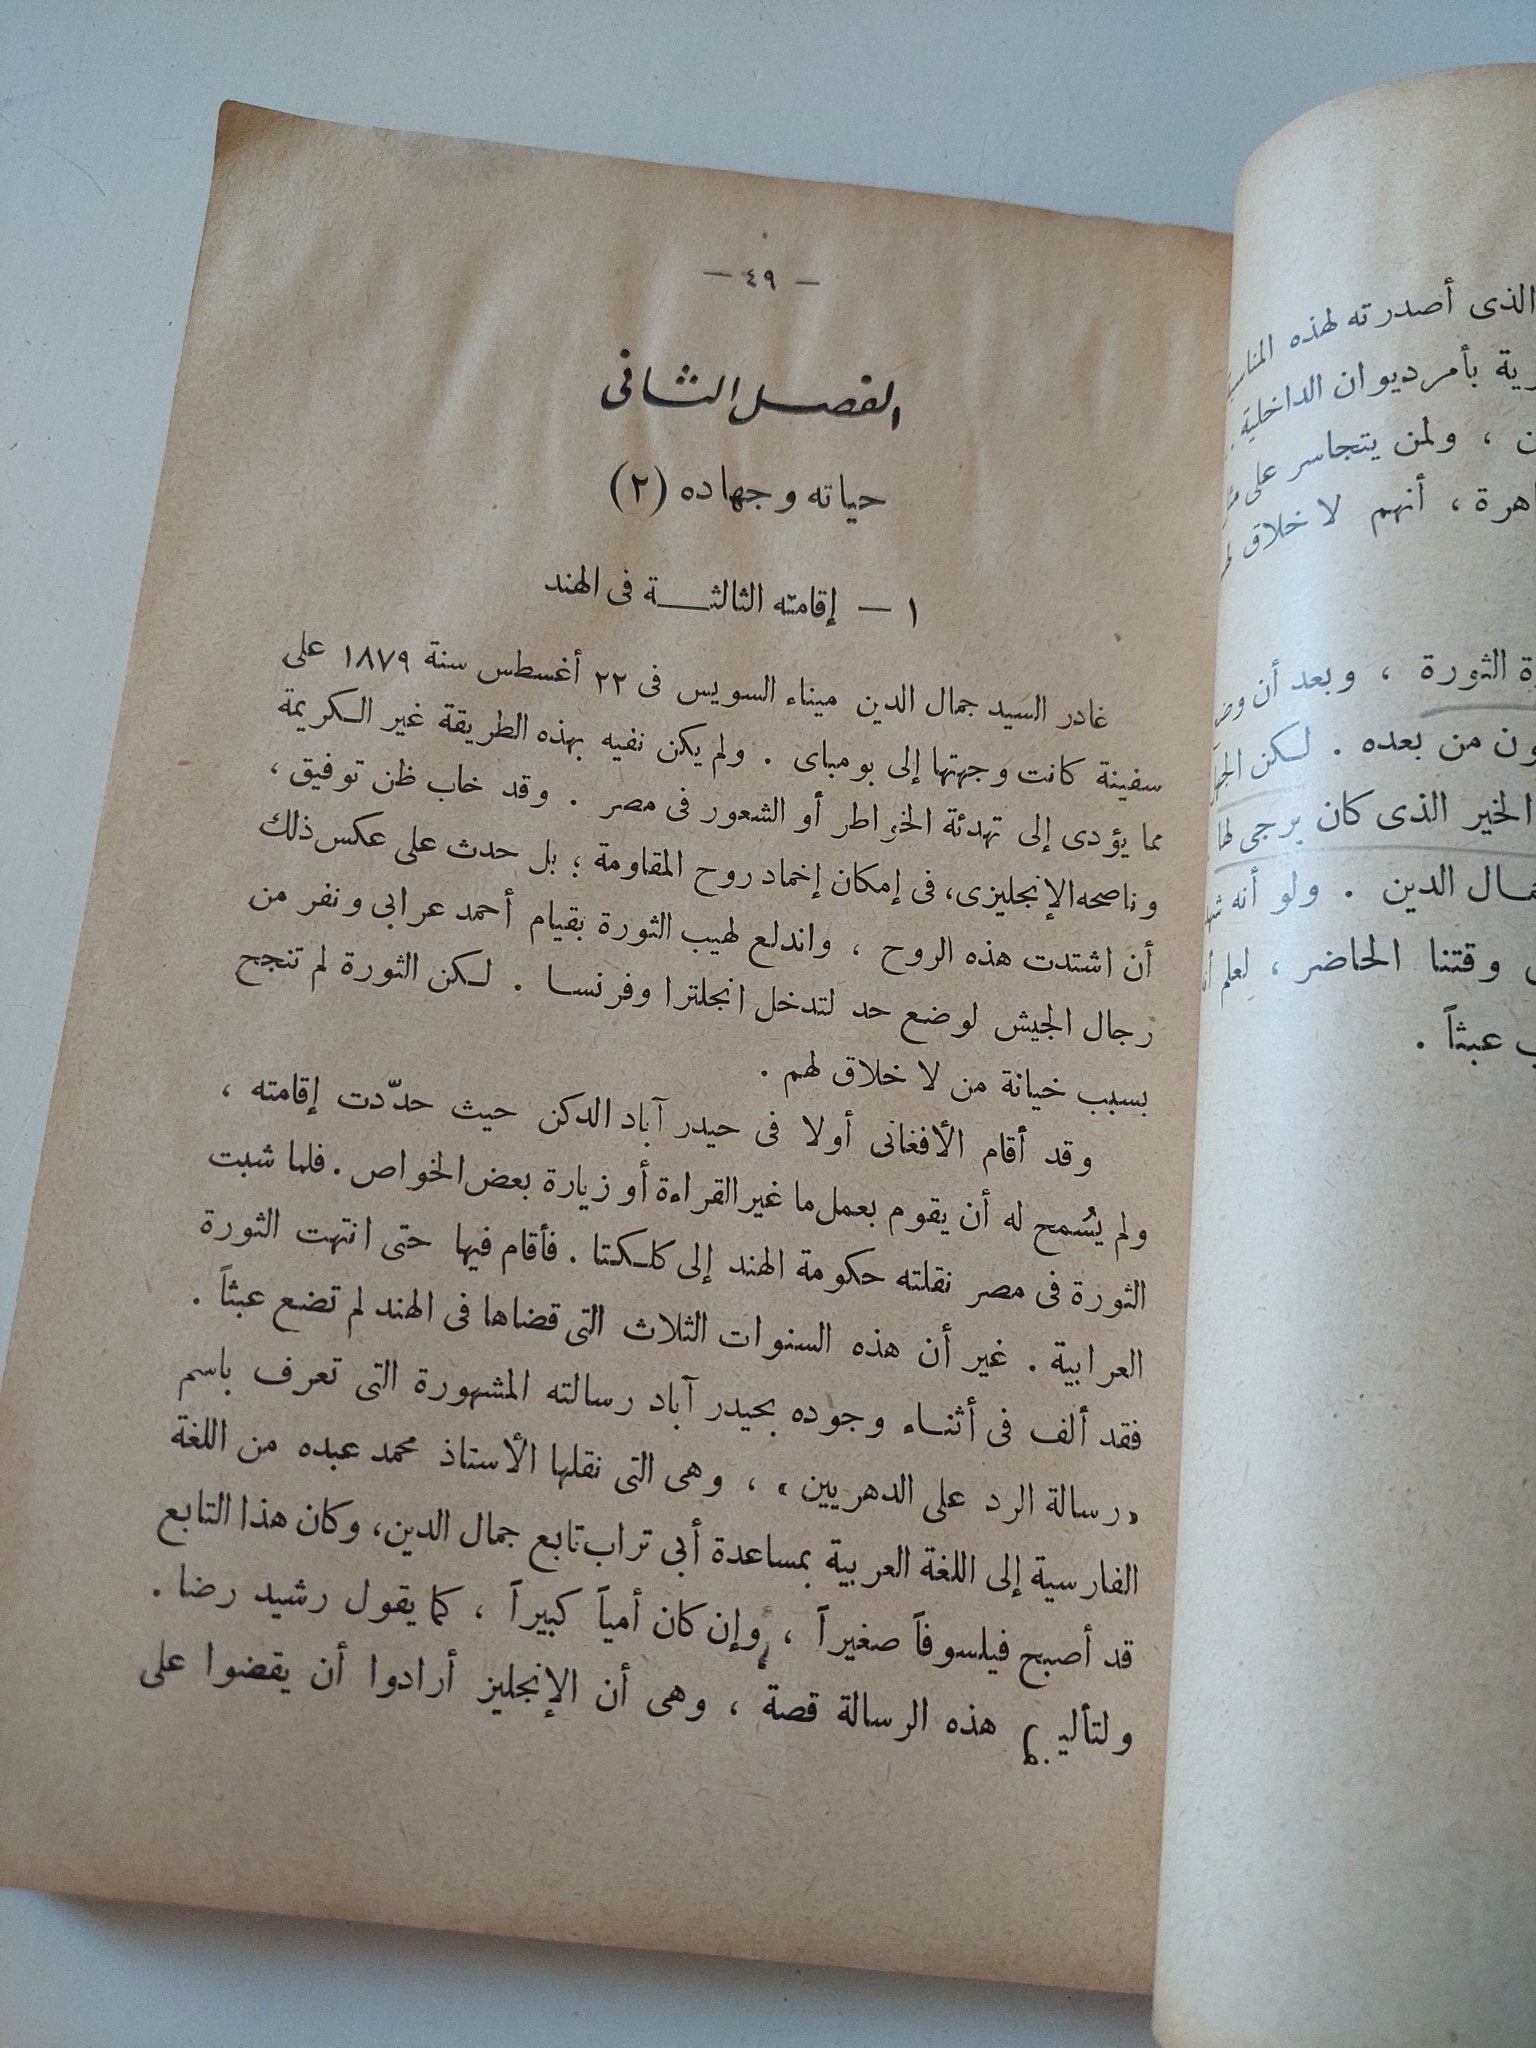 — ٤٩ —
الفصل الثانى
حياته وجهاده (٢)
١ — إقامته الثالثة فى الهند
غادر السيد جمال الدين ميناء السويس فى ٢٢ أغسطس سنة ١٨٧٩ على
سفينة كانت وجهتها إلى بومباى . ولم يكن نفيه بهذه الطريقة غير الكريمة
مما يؤدى إلى تهدئة الخواطر أو الشعور فى مصر . وقد خاب ظن توفيق ،
وناصحه الإنجليزى، فى إمكان إخماد روح المقاومة ؛ بل حدث على عكس ذلك
أن اشتدت هذه الروح ، واندلع لهيب الثورة بقيام أحمد عرابى ونفر من
رجال الجيش لوضع حد لتدخل انجلترا وفرنسا . لكن الثورة لم تنجح
بسبب خيانة من لا خلاق لهم .
وقد أقام الأفغانى أولا فى حيدر آباد الدكن حيث حدّدت إقامته ،
ولم يُسمح له أن يقوم بعمل ما غير القراءة أو زيارة بعض الخواص . فلما شبت
الثورة فى مصر نقلته حكومة الهند إلى كلكتا . فأقام فيها حتى انتهت الثورة
العرابية . غير أن هذه السنوات الثلاث التى قضاها فى الهند لم تضع عبثاً .
فقد ألف فى أثناء وجوده بحيدر آباد رسالته المشهورة التى تعرف باسم
« رسالة الرد على الدهريين » ، وهى التى نقلها الأستاذ محمد عبده من اللغة
الفارسية إلى اللغة العربية بمساعدة أبى تراب تابع جمال الدين، وكان هذا التابع
قد أصبح فيلسوفاً صغيراً ، وإن كان أمياً كبيراً ، كما يقول رشيد رضا .
ولتأليف هذه الرسالة قصة ، وهى أن الإنجليز أرادوا أن يقضوا على
الذى أصدرته لهذه
بأمر ديوان الداخلية
، ولمن يتجاسر على
، أنهم لا خلاق
الثورة ، وبعد أن
من بعده . لكن
الخير الذى كان يرجى لها
الدين . ولو أنه
وقتنا الحاضر ، لعلم
عبثاً .